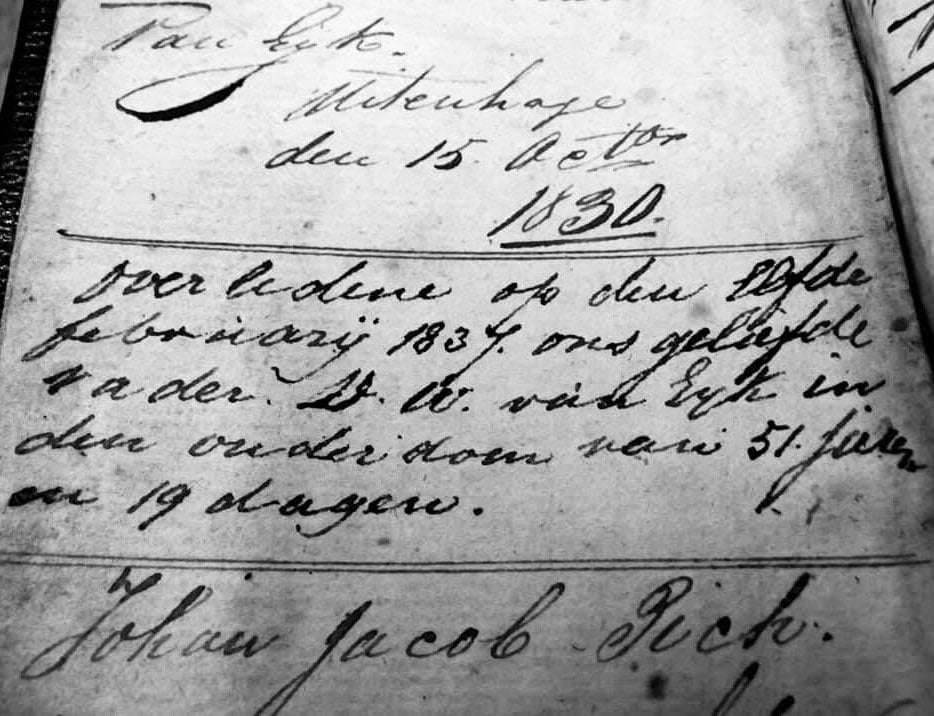 van Eyk.
Uitenhage
den 15. Octor
1830.
overledene op den Elfde
februarij 1837. ons geliefde
vader. D. W. van Eyk in
den ouderdom van 51. Jaren
en 19 dagen.
Johan Jacob Pich.